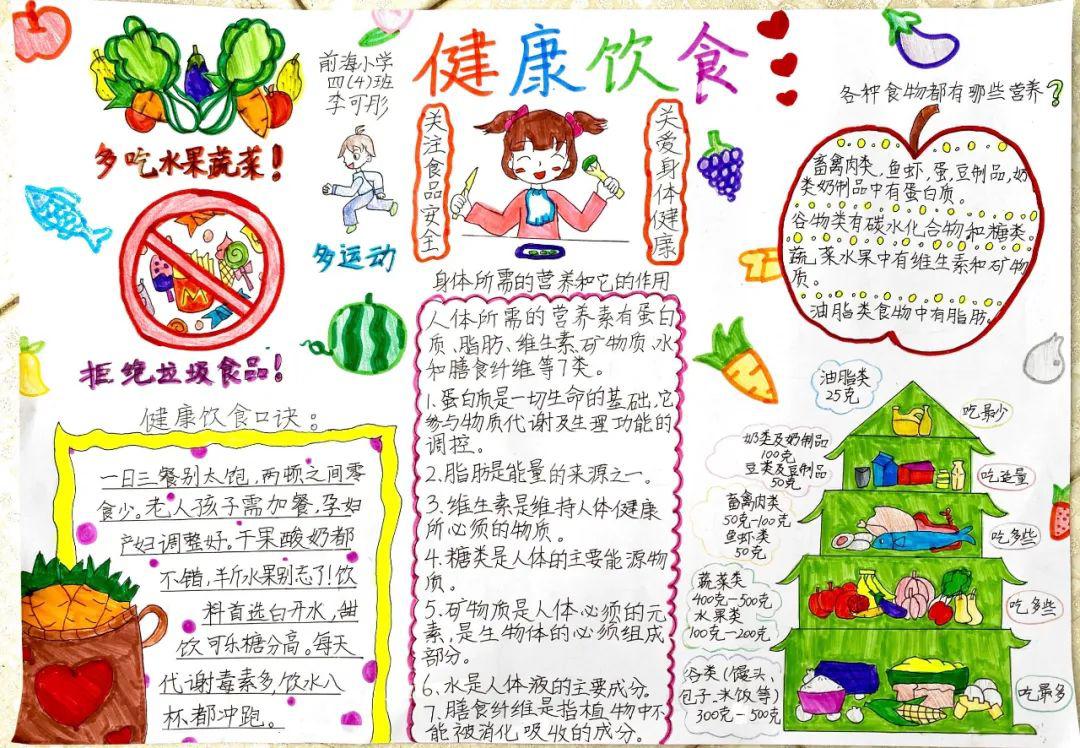 健康饮食
前海小学
四(4)班
李可彤
多吃水果蔬菜！
多运动
拒绝垃圾食品！
关注食品安全
关爱身体健康
健康饮食口诀：
一日三餐别太饱，两顿之间零
食少。老人孩子需加餐，孕妇
产妇调整好。干果酸奶都
不错，半斤水果别忘了！饮
料首选白开水，甜
饮可乐糖分高。每天
代谢毒素多，饮水八
杯都冲跑。
身体所需的营养和它的作用
人体所需的营养素有蛋白
质、脂肪、维生素、矿物质、水
和膳食纤维等7类。
1.蛋白质是一切生命的基础，它
参与物质代谢及生理功能的
调控。
2.脂肪是能量的来源之一。
3.维生素是维持人体健康
所必须的物质。
4.糖类是人体的主要能源物
质。
5.矿物质是人体必须的元
素，是生物体的必须组成
部分。
6.水是人体液的主要成分。
7.膳食纤维是指植物中不
能被消化吸收的成分。
各种食物都有哪些营养？
畜禽肉类，鱼虾，蛋，豆制品，奶
类奶制品中有蛋白质。
谷物类有碳水化合物和糖类。
蔬菜水果中有维生素和矿物
质。
油脂类食物中有脂肪。
油脂类
25克
吃最少
奶类及奶制品
100克
豆类及豆制品
50克
吃适量
畜禽肉类
50克-100克
鱼虾类
50克
吃多些
蔬菜类
400克-500克
水果类
100克-200克
吃多些
谷类（馒头、
包子、米饭等）
300克-500克
吃最多